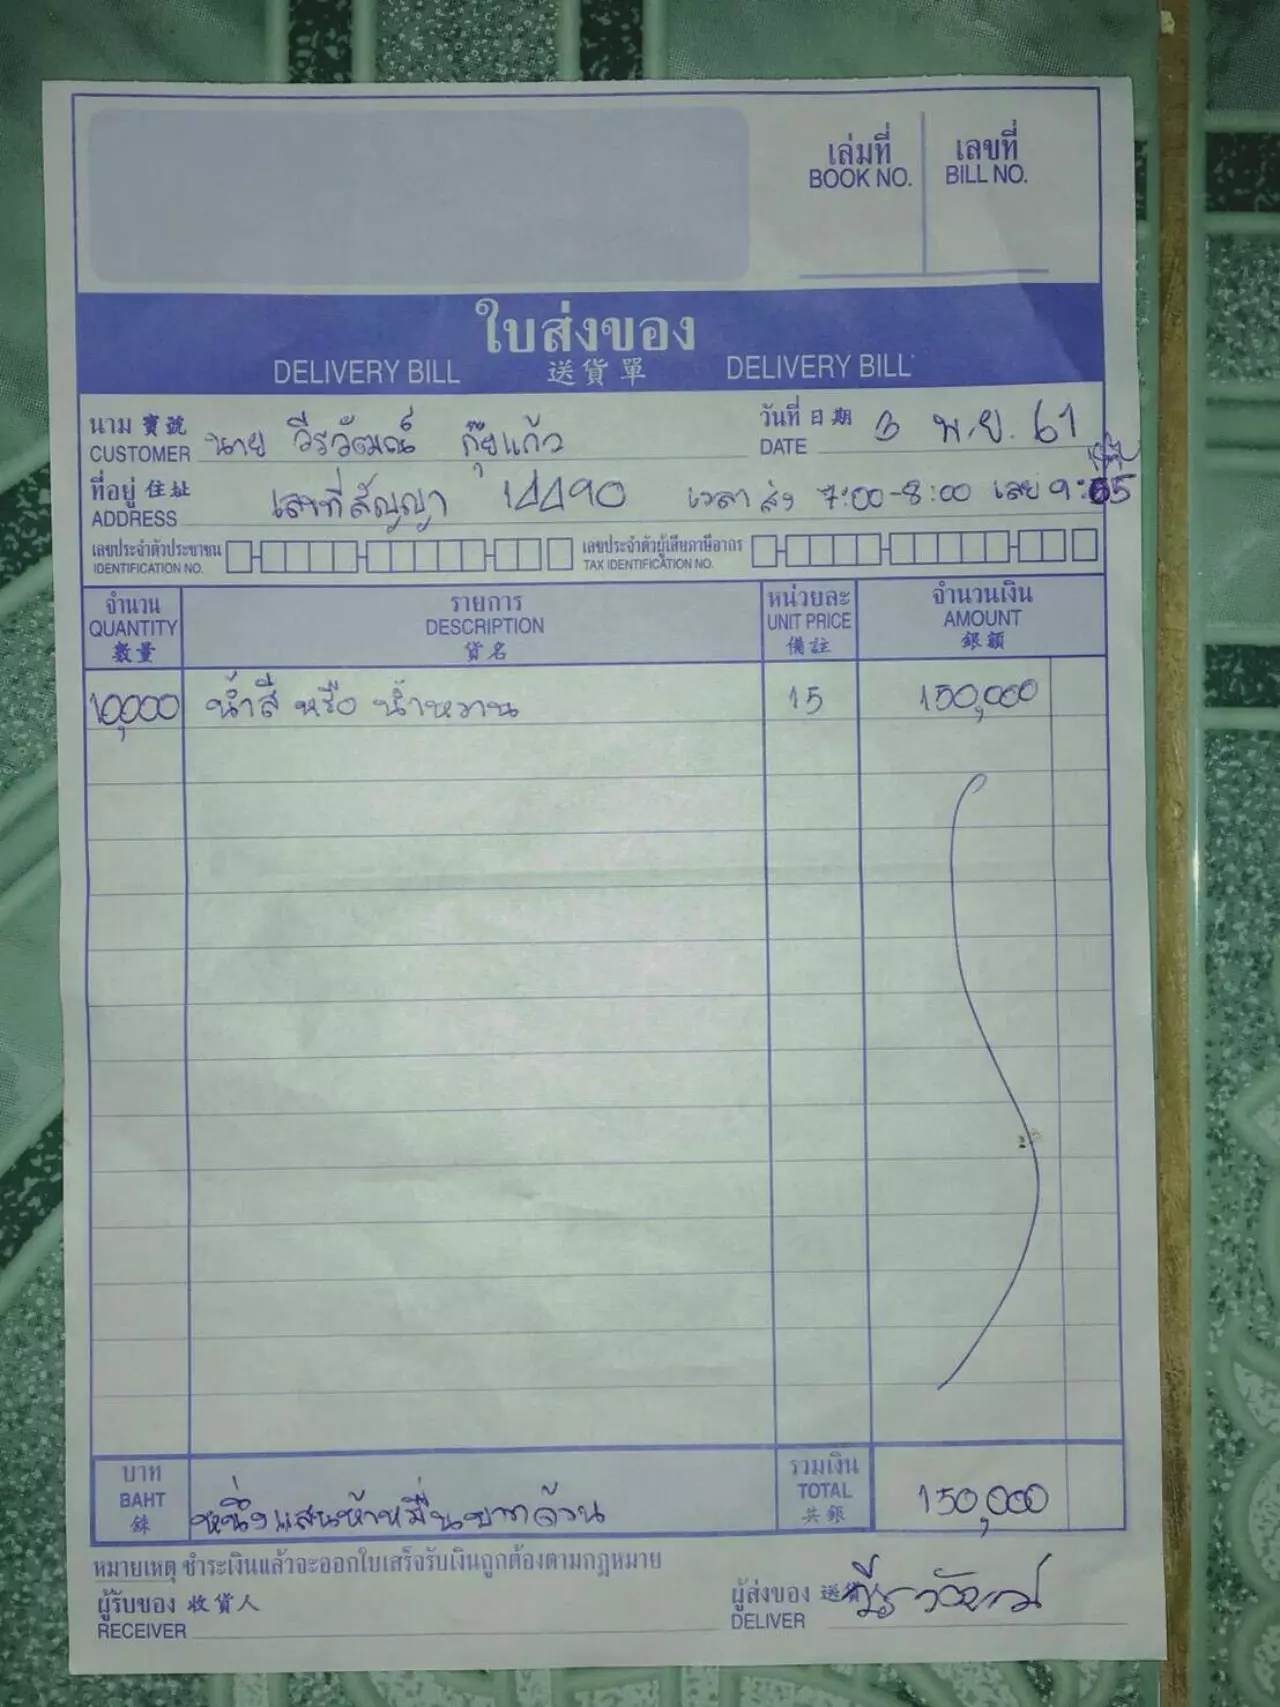 เล่มที่ เลขที่
BOOK NO. BILL NO.
ใบส่งของ
DELIVERY BILL 送貨單 DELIVERY BILL
นาม 寶號 วันที่ 日期
CUSTOMER นาย วีรวัฒณ์ กุ๊ยแก้ว DATE 3 พ.ย. 61
ที่อยู่ 住址
ADDRESS เลขที่สัญญา 14490 เวลาส่ง 7:00-8:00 เลย 9:55
เลขประจำตัวประชาชน เลขประจำตัวผู้เสียภาษีอากร
IDENTIFICATION NO. TAX IDENTIFICATION NO.
จำนวน รายการ หน่วยละ จำนวนเงิน
QUANTITY DESCRIPTION UNIT PRICE AMOUNT
數量 貨名 備註 銀額
10,000 น้ำสี หรือ น้ำหวาน 15 150,000
บาท รวมเงิน
BAHT หนึ่งแสนห้าหมื่นบาทถ้วน TOTAL 150,000
銖 共銀
หมายเหตุ ชำระเงินแล้วจะออกใบเสร็จรับเงินถูกต้องตามกฎหมาย
ผู้รับของ 收貨人 ผู้ส่งของ 送貨 วีรวัฒณ์
RECEIVER DELIVER